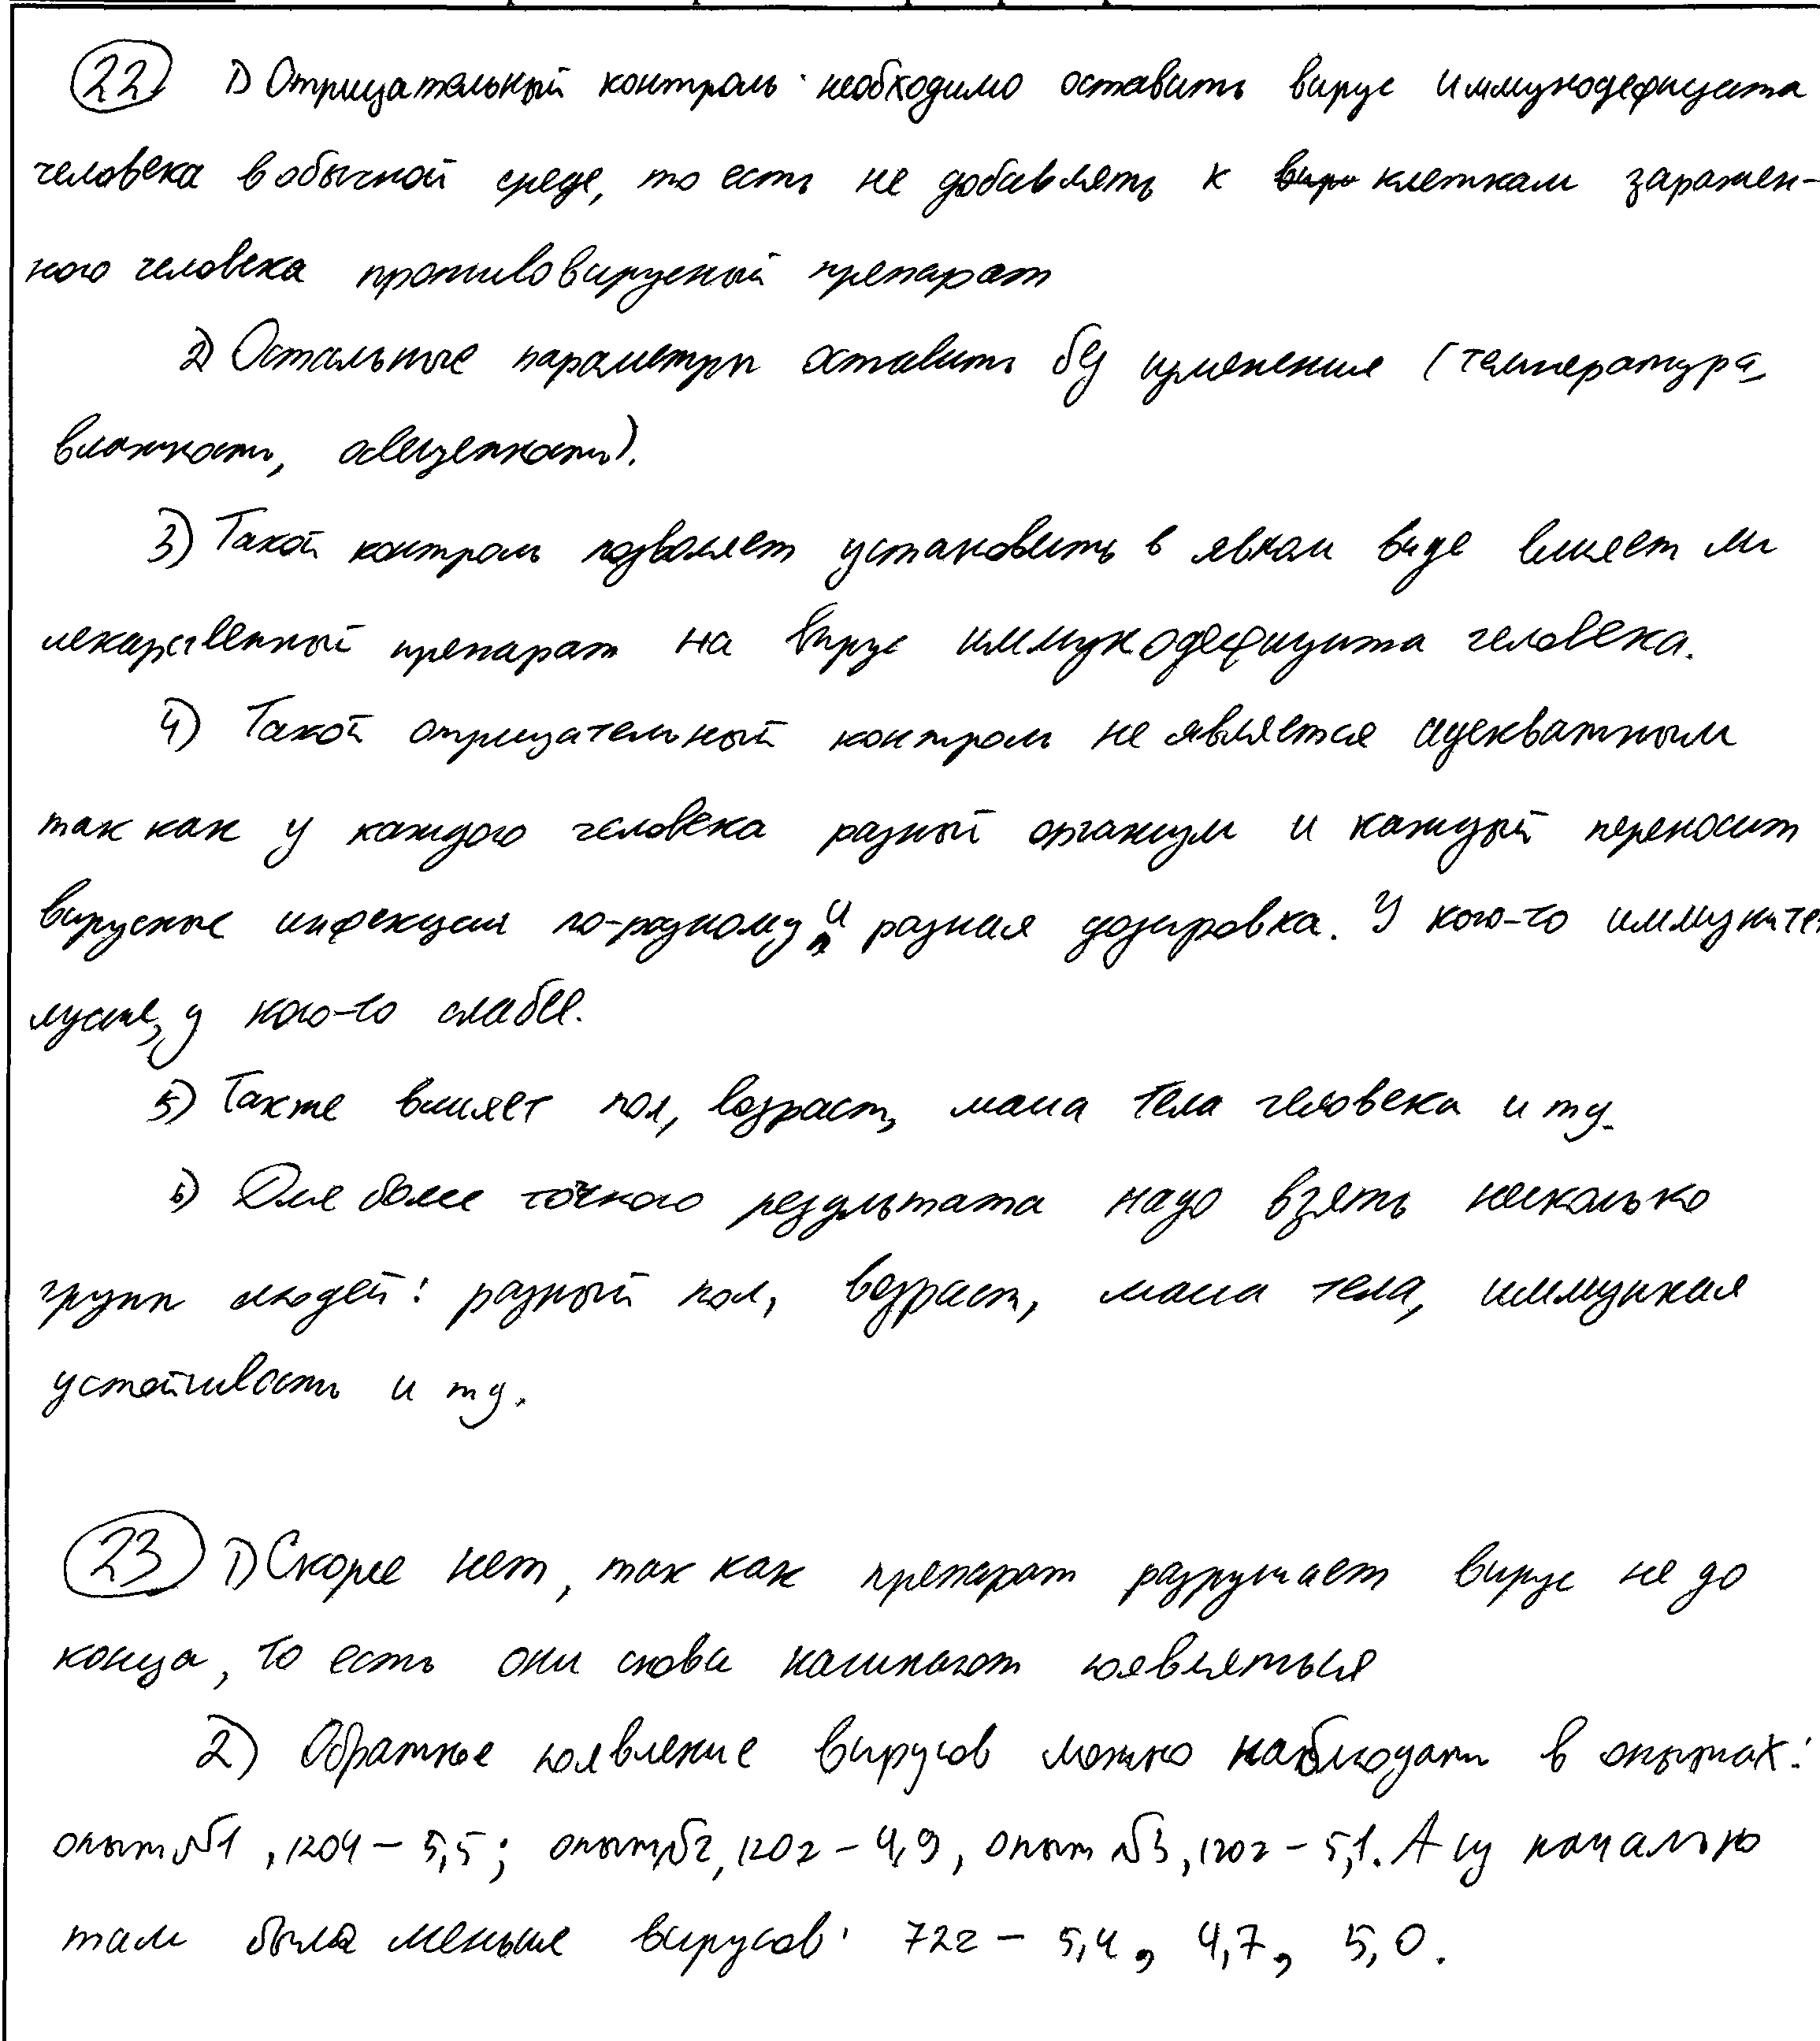 22 1) Отрицательный контроль: необходимо оставить вирус иммунодефицита
человека в обычной среде, то есть не добавлять к клеткам заражен-
ного человека противовирусный препарат
2) Остальные параметры оставить без изменения (температура,
влажность, освещенность).
3) Такой контроль позволяет установить в явном виде влияет ли
лекарственный препарат на вирус иммунодефицита человека.
4) Такой отрицательный контроль не является адекватным
так как у каждого человека разный организм и каждый переносит
вирусные инфекции по-разному и разная дозировка. У кого-то иммунитет
лучше, у кого-то слабее.
5) Также влияет пол, возраст, масса тела человека и тд.
6) Для более точного результата надо взять несколько
групп людей: разный пол, возраст, масса тела, иммунная
устойчивость и тд.
23 1) Скорее нет, так как препарат разрушает вирус не до
конца, то есть они снова начинают появляться
2) Обратное появление вирусов можно наблюдать в опытах:
опыт №1, 120ч - 5,5; опыт №2, 120ч - 4,9, опыт №3, 120ч - 5,1. А изначально
там было меньше вирусов: 72ч - 5,4, 4,7, 5,0.